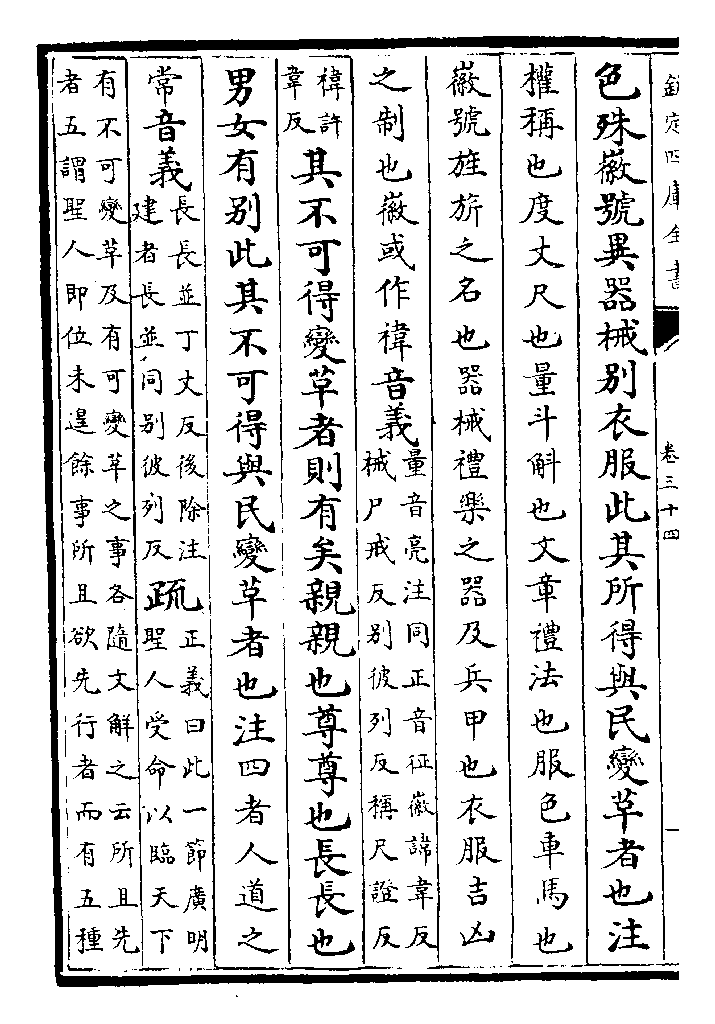 欽定四庫全書
卷三十四
一
色殊徽號異器械别衣服此其所得與民變革者也注
權稱也度丈尺也量斗斛也文章禮法也服色車馬也
徽號旌旂之名也器械禮樂之器及兵甲也衣服吉凶
之制也徽或作褘音義
量音亮注同正音征徽諱韋反
械尸戒反别彼列反稱尺證反
褘許
韋反
其不可得變革者則有矣親親也尊尊也長長也
男女有别此其不可得與民變革者也注四者人道之
常音義
長長並丁丈反後除注
建者長並同别彼列反
疏
正義曰此一節廣明
聖人受命以臨天下
有不可變革及有可變革之事各隨文解之云所且先
者五謂聖人即位未遑餘事所且欲先行者而有五種